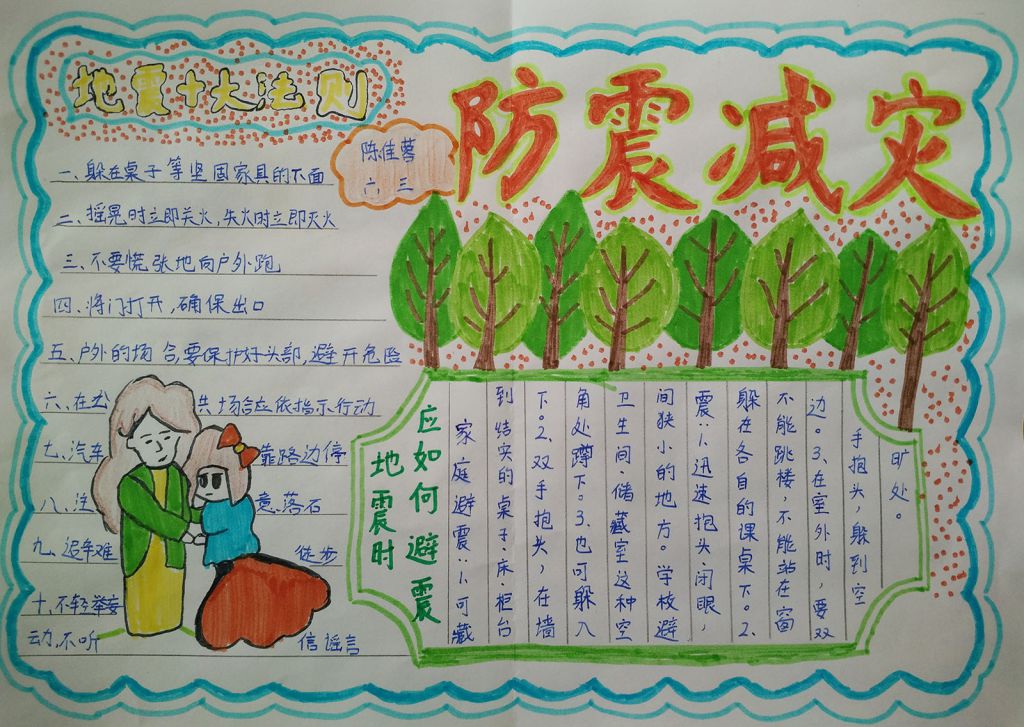 地震十大法则
陈佳蓉
六、三
防震减灾
一、躲在桌子等坚固家具的下面
二、摇晃时立即关火,失火时立即灭火
三、不要慌张地向户外跑
四、将门打开,确保出口
五、户外的场合,要保护好头部,避开危险
六、在公共场合应依指示行动
七、汽车靠路边停
八、注意落石
九、避难徒步
十、不轻举妄
动,不听信谣言
地震时
应如何避震
家庭避震:1.可藏
到结实的桌子、床、柜台
下。2.双手抱头,在墙
角处蹲下。3.也可躲入
卫生间、储藏室这种空
间狭小的地方。学校避
震:1.迅速抱头、闭眼,
躲在各自的课桌下。2.
不能跳楼,不能站在窗
边。3.在室外时,要双
手抱头,躲到空
旷处。